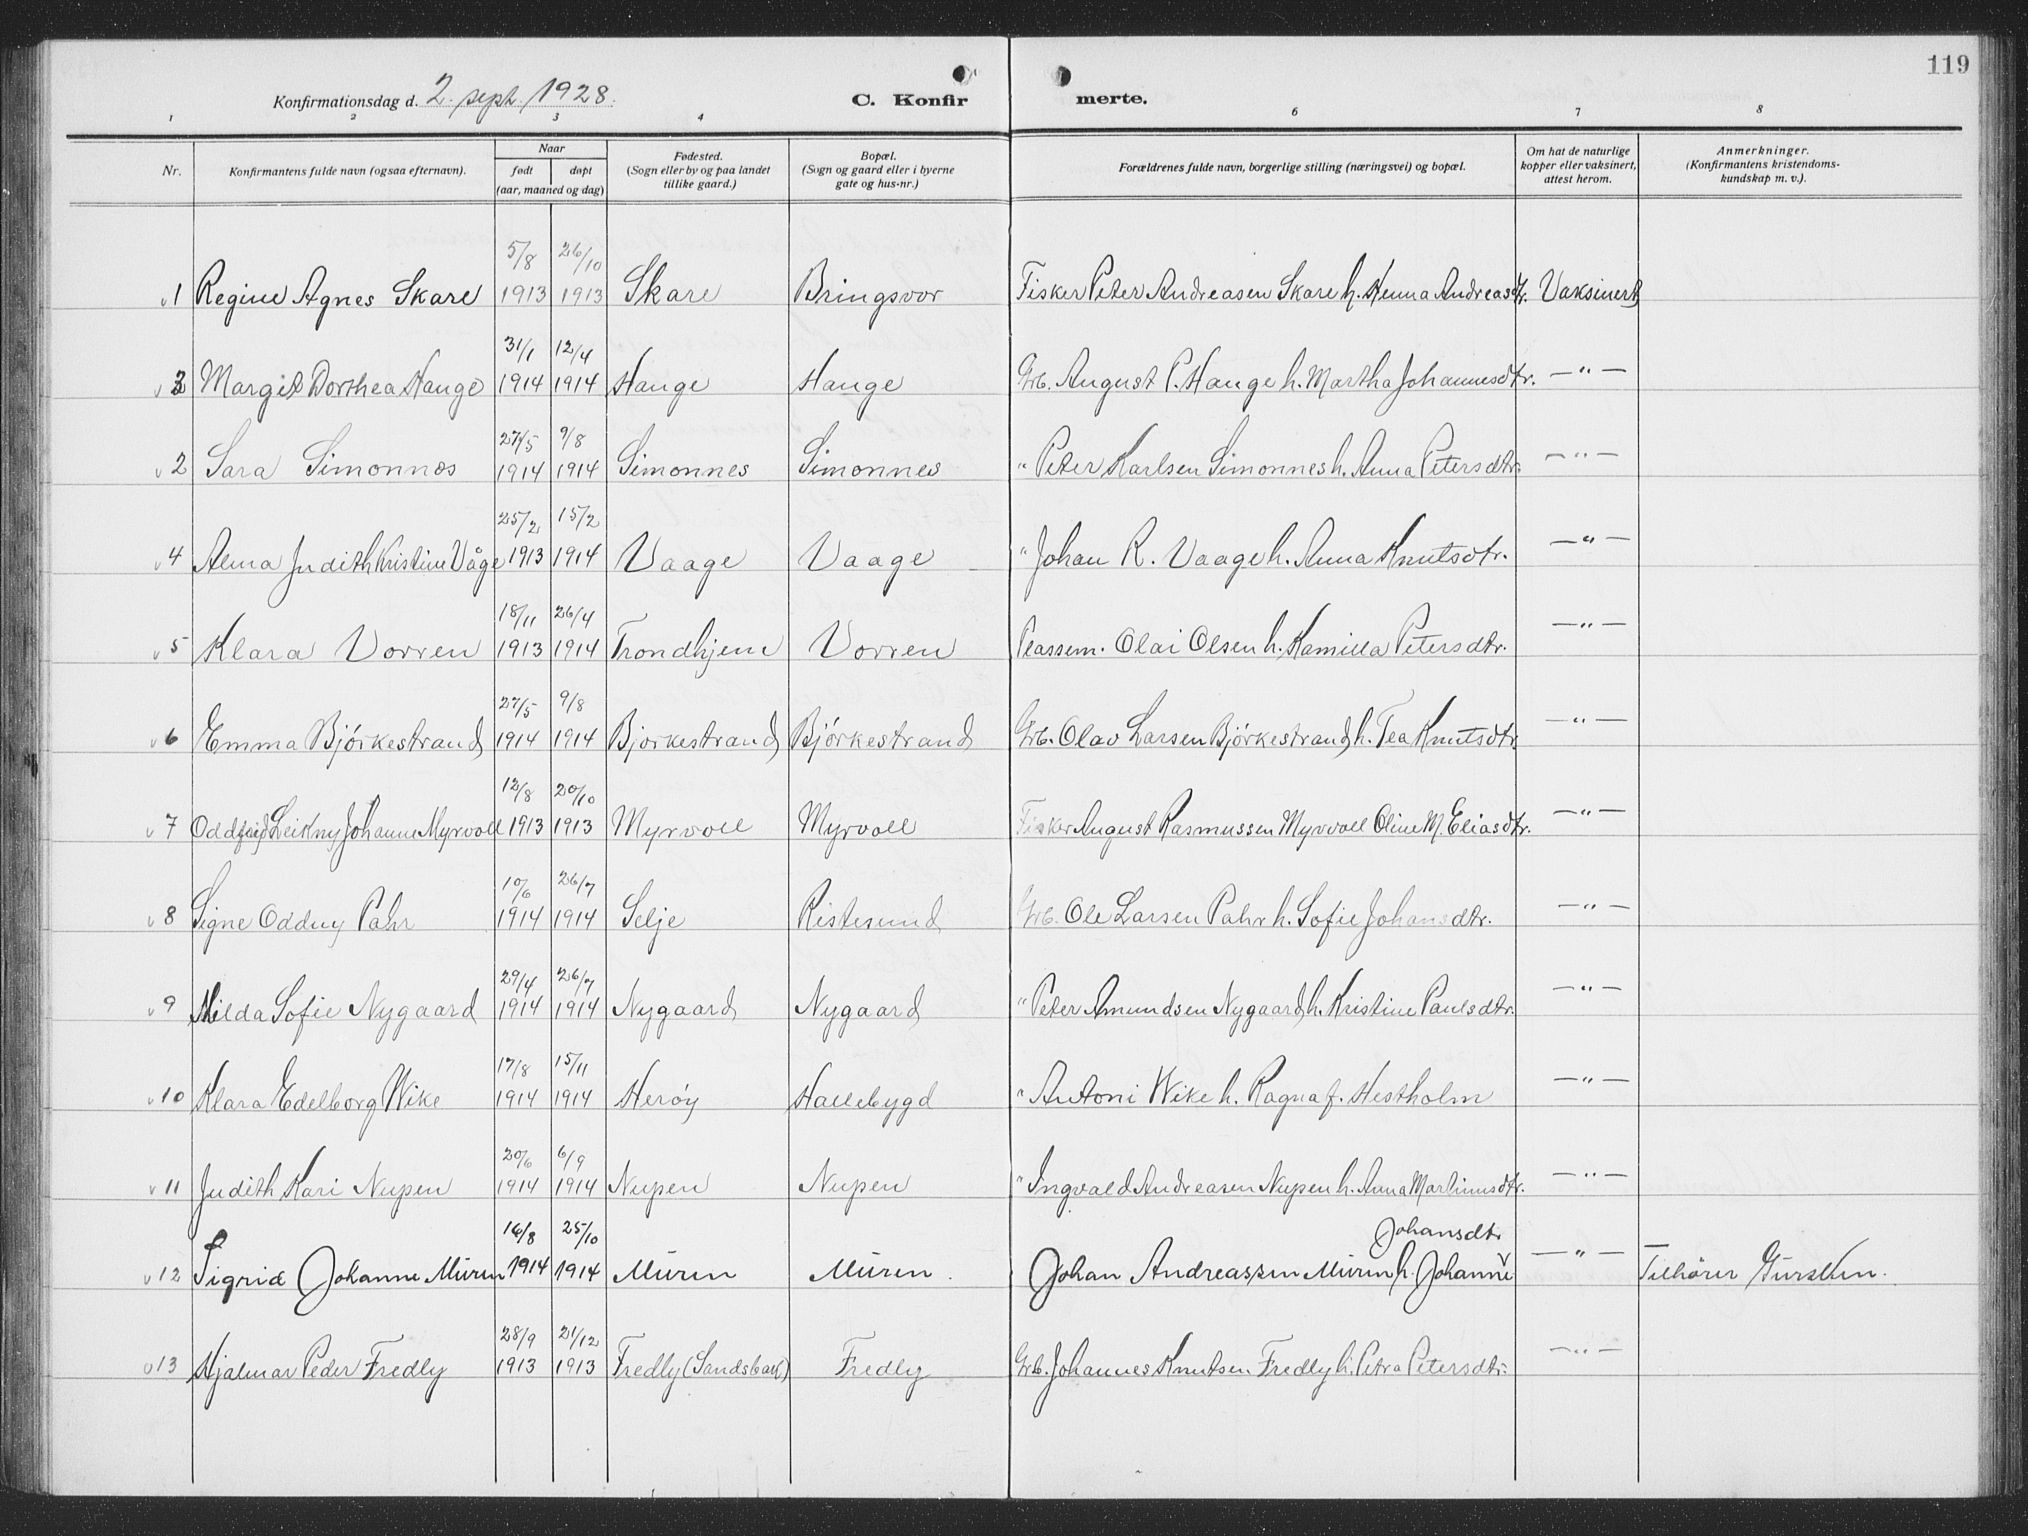 119
Konfirmationsdag d. 2. sept. 1928. C. Konfir merte.
1 2 3 4 6 7 8
Nr. Konfirmantens fulde navn (ogsaa efternavn). Naar født døpt (aar, maaned og dag) Fødested. (Sogn eller by og paa landet tillike gaard.) Bopæl. (Sogn og gaard eller i byerne gate og hus-nr.) Forældrenes fulde navn, borgerlige stilling (næringsvei) og bopæl. Om hat de naturlige kopper eller vaksinert, attest herom. Anmerkninger. (Konfirmantens kristendoms- kundskap m. v.).
5/8 26/10
v 1 Regine Agnes Skare 1913 1913 Skare Bringsvor Fisker Peter Andreasen Skare h. Henna Andreasdtr. Vaksinert
31/1 12/4
v 3 Margit Dorthea Hauge 1914 1914 Hauge Hauge Grb. August P. Hauge h. Martha Johannesdtr. —"—
27/5 9/8
v 2 Sara Simonnes 1914 1914 Simonnes Simonnes " Peter Karlsen Simonnes h. Anna Petersdtr. —"—
25/2 15/2
v 4 Alma Judith Kristine Våge 1913 1914 Vaage Vaage " Johan R. Vaage h. Anna Knutsdtr. —"—
18/11 26/4
v 5 Klara Vorren 1913 1914 Trondhjem Vorren Plassem. Olai Olsen h. Kamilla Petersdtr. —"—
27/5 9/8
v 6 Emma Bjórkestrand 1914 1914 Bjorkestrand Bjórkestrand Grb. Olav Larsen Bjórkestrand h. Tea Knutsdtr. —"—
12/8 20/10
v 7 Leikny Johanne Myrvoll 1913 1913 Myrvoll Myrvoll Fisker August Rasmussen Myrvoll Oline M. Eliasdtr. —"—
10/6 26/7
v 8 Signe Oddny Pahr 1914 1914 Selje Ristesund Grb. Ole Larsen Pahr h. Sofie Johansdtr. —"—
29/4 26/7
v 9 Hilda Sofie Nygaard 1914 1914 Nygaard Nygaard " Peter Amundsen Nygaard h. Kristine Paulsdtr. —"—
17/8 15/11
v 10 Klara Edelborg Wike 1914 1914 Heróy Hallebygd " Antoni Wike h. Ragna f. Hestholm —"—
20/6 6/9
v 11 Judith Kari Nupen 1914 1914 Nupen Nupen " Ingvald Andreasen Nupen h. Anna Martinusdtr. —"—
16/8 25/10 Johansdtr.
v 12 Sigrid Johanne Müren 1914 1914 Müren Müren. Johan Andreassen Müren h. Johanne —"— Tilhórer Gursken.
28/9 21/12
v 13 Hjalmar Peder Fredly 1913 1913 Fredly (Sandsbak) Fredly Grb. Johannes Knutsen Fredly h. Petra Petersdtr. —"—